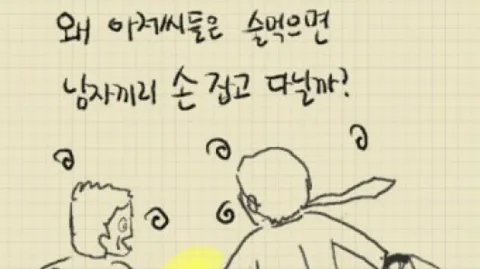 왜 아저씨들은 술먹으면
남자끼리 손 잡고 다닐까?